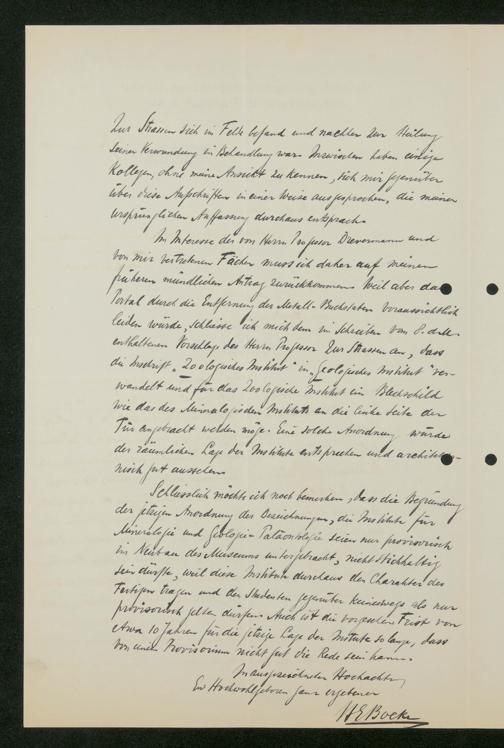 Zur Strassen sich im Felde befand und nachher zur Heilung
seiner Verwundung in Behandlung war. Inzwischen haben einige
Kollegen, ohne meine Ansicht zu kennen, sich mir gegenüber
über diese Aufschriften in einer Weise ausgesprochen, die meiner
ursprünglichen Auffassung durchaus entsprach.
Im Interesse der von Herrn Professor Drevermann und
von mir vertretenen Fächer muss ich daher auf meinen
früheren mündlichen Antrag zurückkommen. Weil aber das
Portal durch die Entfernung der Metall-Buchstaben voraussichtlich
leiden würde, schliesse ich mich dem im Schreiben vom 8. d. M.
enthaltenen Vorschlage des Herrn Professor Zur Strassen an, dass
die Inschrift „Zoologisches Institut" in „Geologisches Institut" ver-
wandelt und für das Zoologische Institut ein Blechschild
wie das des Mineralogischen Instituts an die linke Seite der
Tür angebracht werden möge. Eine solche Anordnung würde
der räumlichen Lage der Institute entsprechen und architekto-
nisch gut aussehen.
Schliesslich möchte ich noch bemerken, dass die Begründung
der jetzigen Anordnung der Bezeichnungen, die Institute für
Mineralogie und Geologie-Paläontologie seien nur provisorisch
im Neubau des Museums untergebracht, nicht stichhaltig
sein dürfte, weil diese Institute durchaus den Charakter des
Fertigen tragen und den Studenten gegenüber keineswegs als nur
provisorisch gelten dürfen. Auch ist die vorgesehene Frist von
etwa 10 Jahren für die jetzige Lage der Institute so lange, dass
von einem Provisorium nicht gut die Rede sein kann.
In ausgezeichneter Hochachtung
Ew Hochwohlgeboren ganz ergebener
H E Boeke